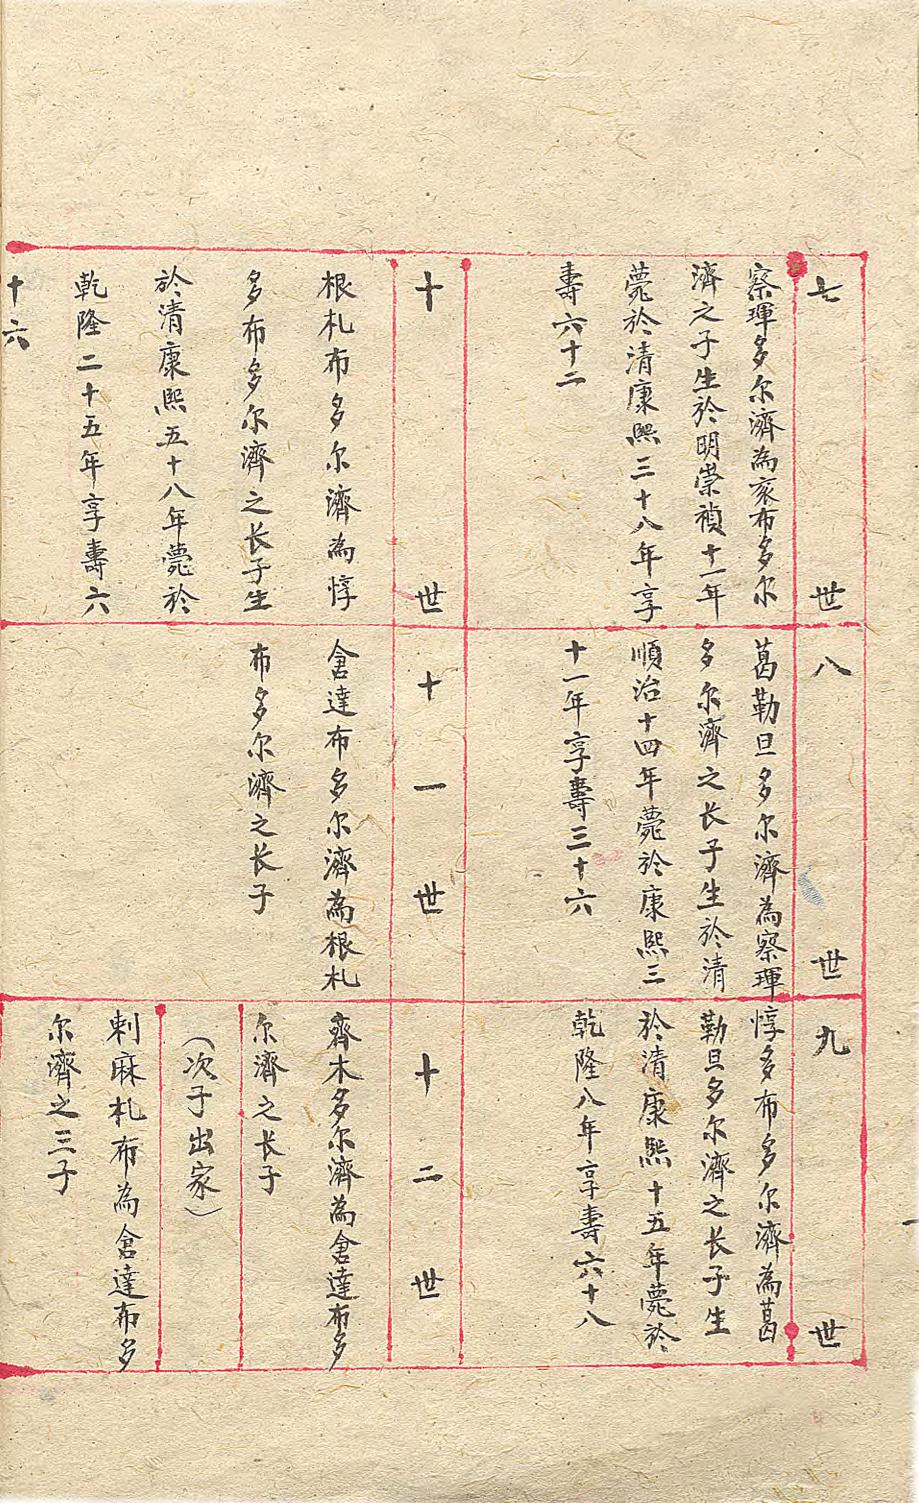 七世
察琿多尔濟為亥布多尔
濟之子生於明崇禎十一年
薨於清康熙三十八年享
壽六十二
八世
葛勒旦多尔濟為察琿
多尔濟之长子生於清
順治十四年薨於康熙三
十一年享壽三十六
九世
惇多布多尔濟為葛
勒旦多尔濟之长子生
於清康熙十五年薨於
乾隆八年享壽六十八
十世
根札布多尔濟為惇
多布多尔濟之长子生
於清康熙五十八年薨於
乾隆二十五年享壽六
十六
十一世
倉達布多尔濟為根札
布多尔濟之长子
十二世
齊木多尔濟為倉達布多
尔濟之长子
（次子出家）
刺麻札布為倉達布多
尔濟之三子